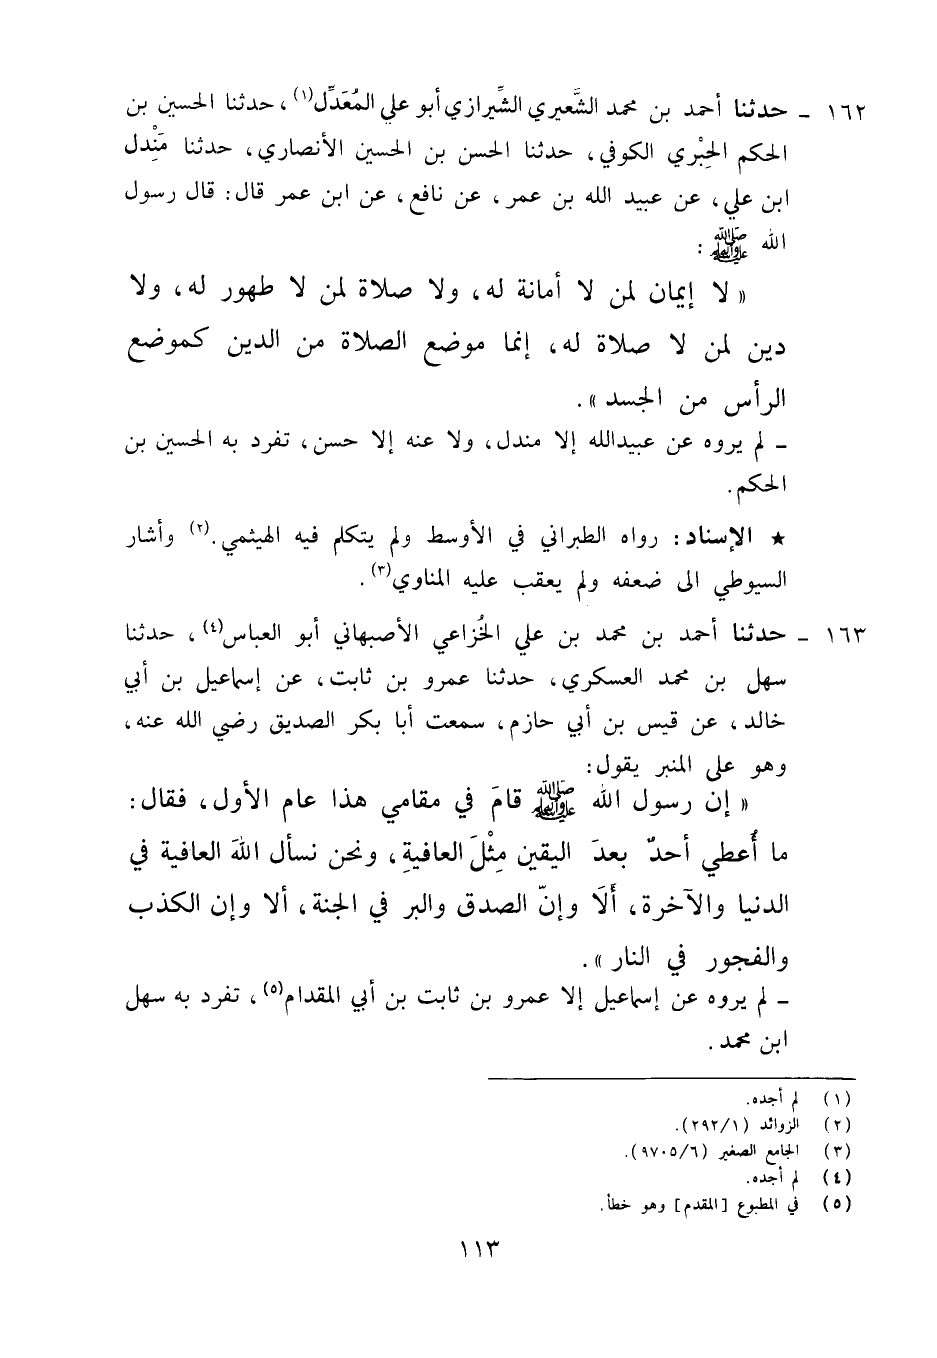 ١٦٢ - حدثنا أحمد بن محمد الشَّعيري الشِّيرازي أبو علي المُعَدِّل(١)، حدثنا الحسين بن
الحكم الحِبْري الكوفي، حدثنا الحسن بن الحسين الأنصاري، حدثنا مَنْدل
ابن علي، عن عبيد الله بن عمر، عن نافع، عن ابن عمر قال: قال رسول
الله ﷺ :
« لا إيمان لمن لا أمانة له، ولا صلاة لمن لا طهور له، ولا
دين لمن لا صلاة له، إنما موضع الصلاة من الدين كموضع
الرأس من الجسد ».
- لم يروه عن عبيدالله إلا مندل، ولا عنه إلا حسن، تفرد به الحسين بن
الحكم.
★ الإسناد: رواه الطبراني في الأوسط ولم يتكلم فيه الهيثمي.(٢) وأشار
السيوطي الى ضعفه ولم يعقب عليه المناوي(٣).
١٦٣ - حدثنا أحمد بن محمد بن علي الخُزاعي الأصبهاني أبو العباس(٤)، حدثنا
سهل بن محمد العسكري، حدثنا عمرو بن ثابت، عن إسماعيل بن أبي
خالد، عن قيس بن أبي حازم، سمعت أبا بكر الصديق رضي الله عنه،
وهو على المنبر يقول:
« إن رسول الله ﷺ قامَ في مقامي هذا عام الأول، فقال:
ما أُعطي أحدٌ بعدَ اليقين مِثْلَ العافيةِ، ونحن نسأل اللهَ العافية في
الدنيا والآخرة، أَلَا وإنّ الصدق والبر في الجنة، ألا وإن الكذب
والفجور في النار ».
- لم يروه عن إسماعيل إلا عمرو بن ثابت بن أبي المقدام(٥)، تفرد به سهل
ابن محمد.
(١) لم أجده.
(٢) الزوائد (٢٩٢/١).
(٣) الجامع الصغير (٩٧٠٥/٦).
(٤) لم أجده.
(٥) في المطبوع [المقدم] وهو خطأ.
١١٣